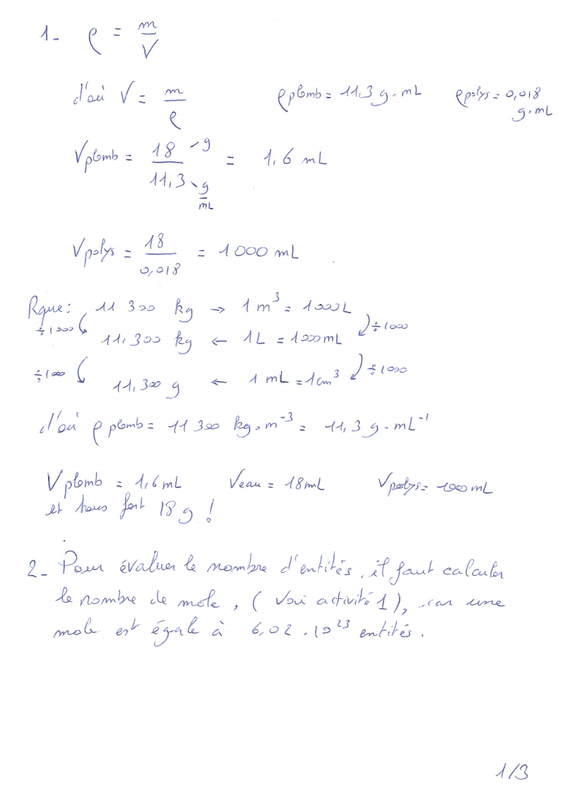 1- ρ = m/V
d'où V = m/ρ ρ plomb = 11,3 g.mL ρ polys = 0,018 g.mL
V plomb = 18/11,3 = 1,6 mL
g
g/mL
V polys = 18/0,018 = 1000 mL
Rque : 11 300 kg → 1 m³ = 1000L
÷1000 ÷1000
11,300 kg ← 1L = 1000mL
÷1000 ÷1000
11,300 g ← 1 mL = 1cm³
d'où ρ plomb = 11 300 kg.m⁻³ = 11,3 g.mL⁻¹
V plomb = 1,6mL Veau = 18mL Vpolys = 1000mL
et tous font 18 g !
2- Pour évaluer le nombre d'entités, il faut calculer
le nombre de mole, (voir activité 1), car une
mole est égale à 6,02 . 10²³ entités.
1/3